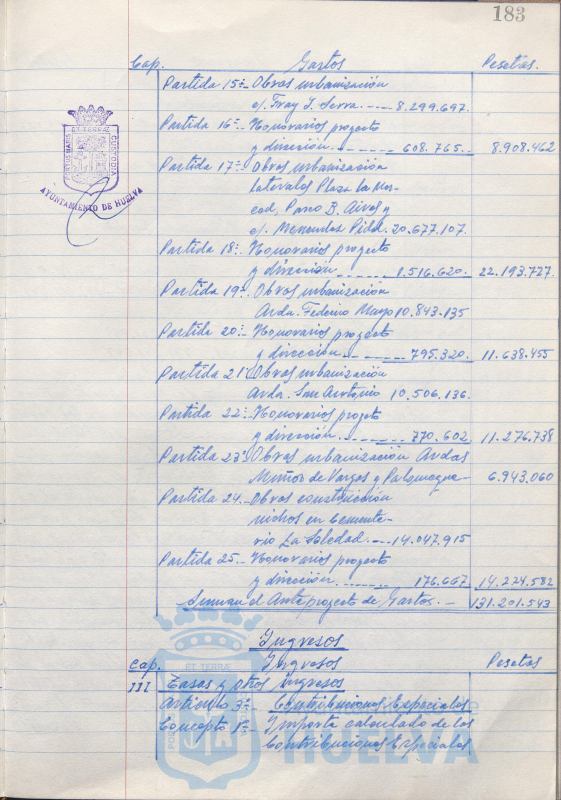 183
Cap. Gastos Pesetas.
Partida 15ª- Obras urbanización
c/. Fray J. Serra. ---- 8.299.697.
Partida 16ª- Honorarios proyecto
y dirección. ------ 608.765.. 8.908.462
Partida 17ª- Obras urbanización
laterales Plaza la Mer-
ced, Paseo B. Aires y
c/. Menendez Pidal. 20.677.107.
Partida 18ª- Honorarios proyecto
y dirección ------ 1.516.620. 22.193.727.
Partida 19ª- Obras urbanización
Avda. Federico Mayo 10.843.135
Partida 20ª- Honorarios proyecto
y dirección ------ 795.320. 11.638.455
Partida 21ª Obras urbanización
Avda. San Antonio 10.506.136.
Partida 22ª- Honorarios proyecto
y dirección. ------ 770.602 11.276.738
Partida 23ª Obras urbanización Avdas
Muñoz de Vargas y Palomeque- 6.943.060
Partida 24.- Obras construcción
nichos en Cemente-
rio La Soledad. --- 14.047.915
Partida 25.- Honorarios proyecto
y dirección. ------ 176.667 14.224.582
Suman el Anteproyecto de Gastos. - 131.201.543
Ingresos
Cap. Ingresos Pesetas
III Tasas y otros Ingresos
Artículo 3º- Contribuciones Especiales
Concepto 1º- Importe calculado de las
Contribuciones Especiales
ET TERRÆ CUSTODIA
PORTUS MARIS
AYUNTAMIENTO DE HUELVA
ET TERRÆ
HUELVA